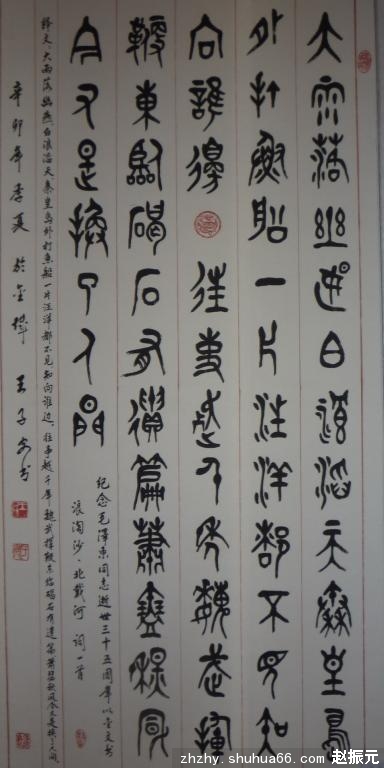 大雨落幽燕白浪滔天秦皇島
外打魚船一片汪洋都不見知
向誰邊往事越千年魏武揮
鞭東臨碣石有遺篇蕭瑟秋風
今又是換了人間
纪念毛澤東同志逝世三十五周年以金文书
浪淘沙·北戴河 词一首
释文:大雨落幽燕,白浪滔天,秦皇岛外打鱼船一片汪洋都不見知向誰边,往事越千年魏武揮鞭东临碣石有遗篇萧瑟秋风今又是换了人间
辛卯年季夏 於金 王子 书
zhzhy.shuhua66.com 赵振元